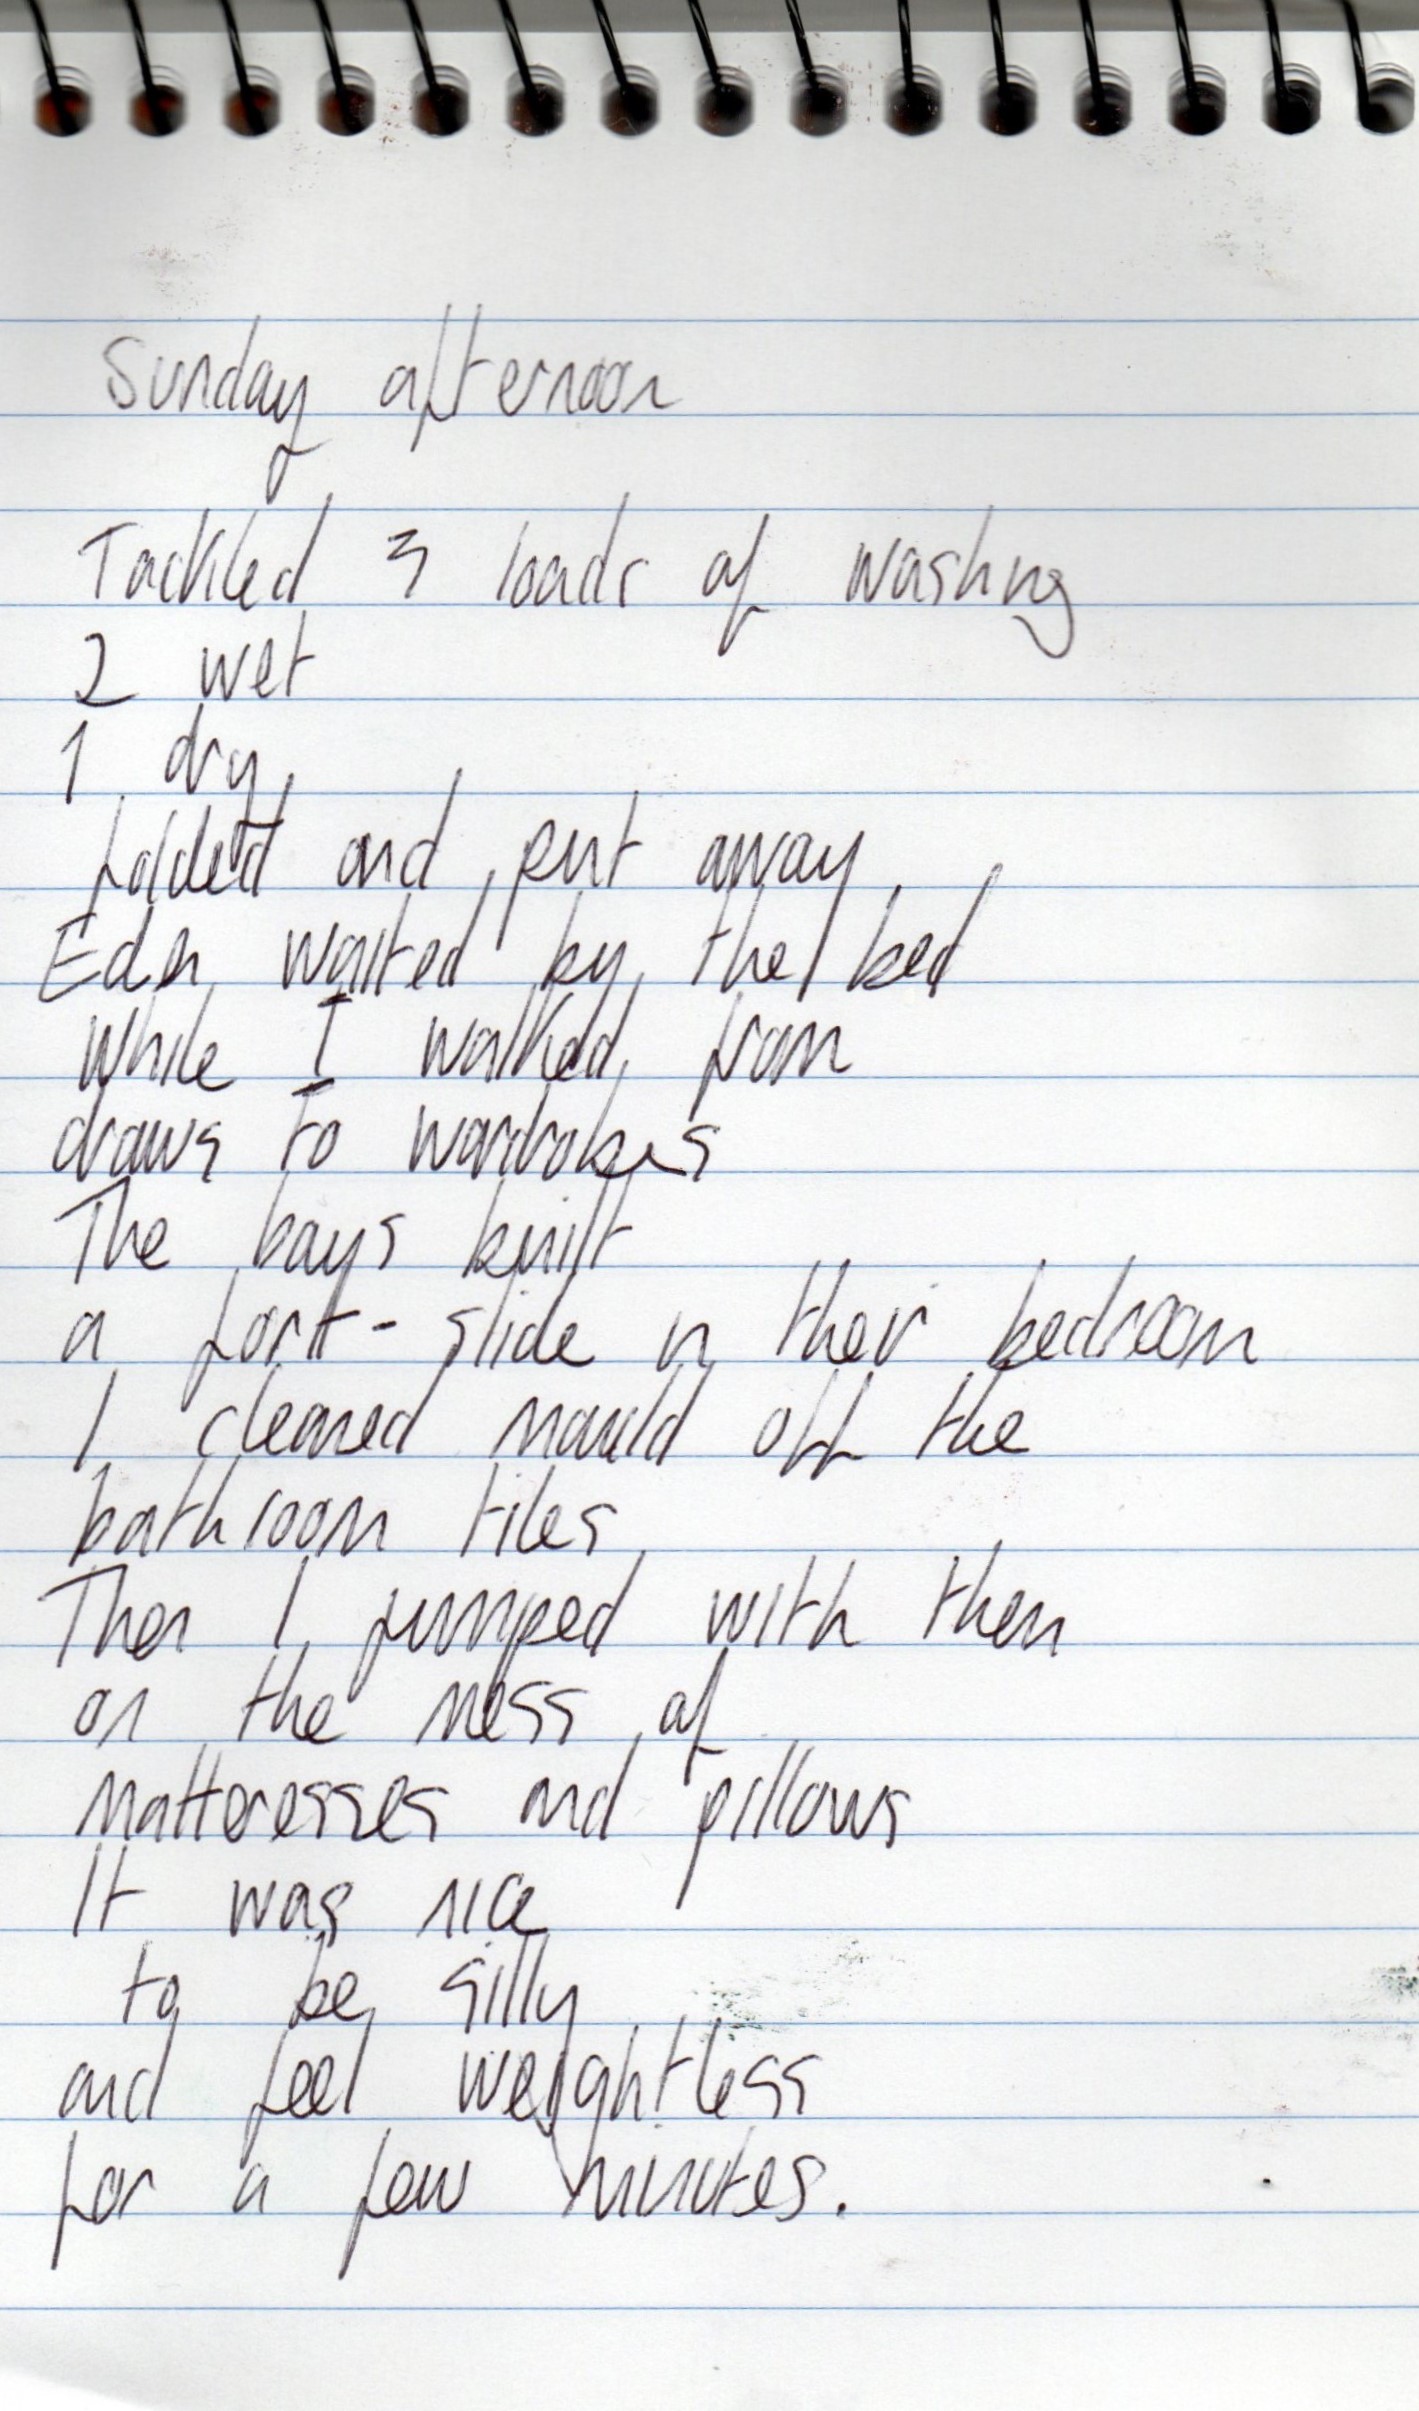 Sunday afternoon
Tackled 3 loads of washing
2 wet
1 dry
folded and put away
Eden waited by the bed
while I walked from
draws to wardrobes
The boys built
a fort-slide in their bedroom
I cleaned mould off the
bathroom tiles
Then I jumped with them
on the mess of
matteresses and pillows
It was nice
to be silly
and feel weightless
for a few minutes.